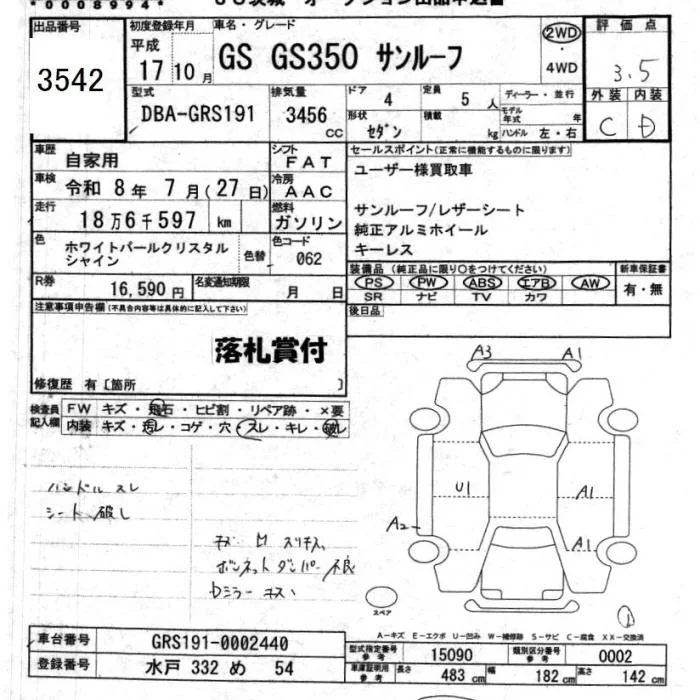 *0008994*
出品番号
3542
初度登録年月
平成
17 10 月
車名・グレード
GS GS350 サンルーフ
2WD
・
4WD
評価点
3.5
外装 内装
C D
型式
DBA-GRS191
排気量
3456
CC
ドア
4
定員
5 人
ディーラー・並行
形状
セダン
積載
kg
モデル年式
年
ハンドル 左・右
車歴
自家用
シフト
FAT
車検
令和 8 年 7 月 (27 日)
冷房
AAC
走行
18万6千597 km
燃料
ガソリン
色
ホワイトパールクリスタル
シャイン
色替
色コード
062
R券
16,590 円
名変通知期限
月 日
セールスポイント(正常に機能するものに限ります)
ユーザー様買取車
サンルーフ/レザーシート
純正アルミホイール
キーレス
装備品 (純正品に限り○をつけてください)
PS PW ABS エアB AW
SR ナビ TV カワ
新車保証書
有・無
後日品
注意事項申告欄(不具合内容等は具体的に記入して下さい)
落札賞付
修復歴 有〔箇所 〕
検査員
記入欄
FW キズ・飛石・ヒビ割・リペア跡・×要
内装 キズ・汚レ・コゲ・穴・スレ・キレ・破レ
ハンドル スレ
シート 破レ
ボンネットダンパー不良
A3 A1
U1 A1
A2
A1
スペア
A-キズ E-エクボ U-凹み W-補修跡 S-サビ C-腐食 XX-交換済
車台番号
GRS191-0002440
登録番号
水戸 332 め 54
型式指定番号
参考
15090
類別区分番号
参考
0002
車庫証明用
参考
長さ
483 cm
幅
182 cm
高さ
142 cm